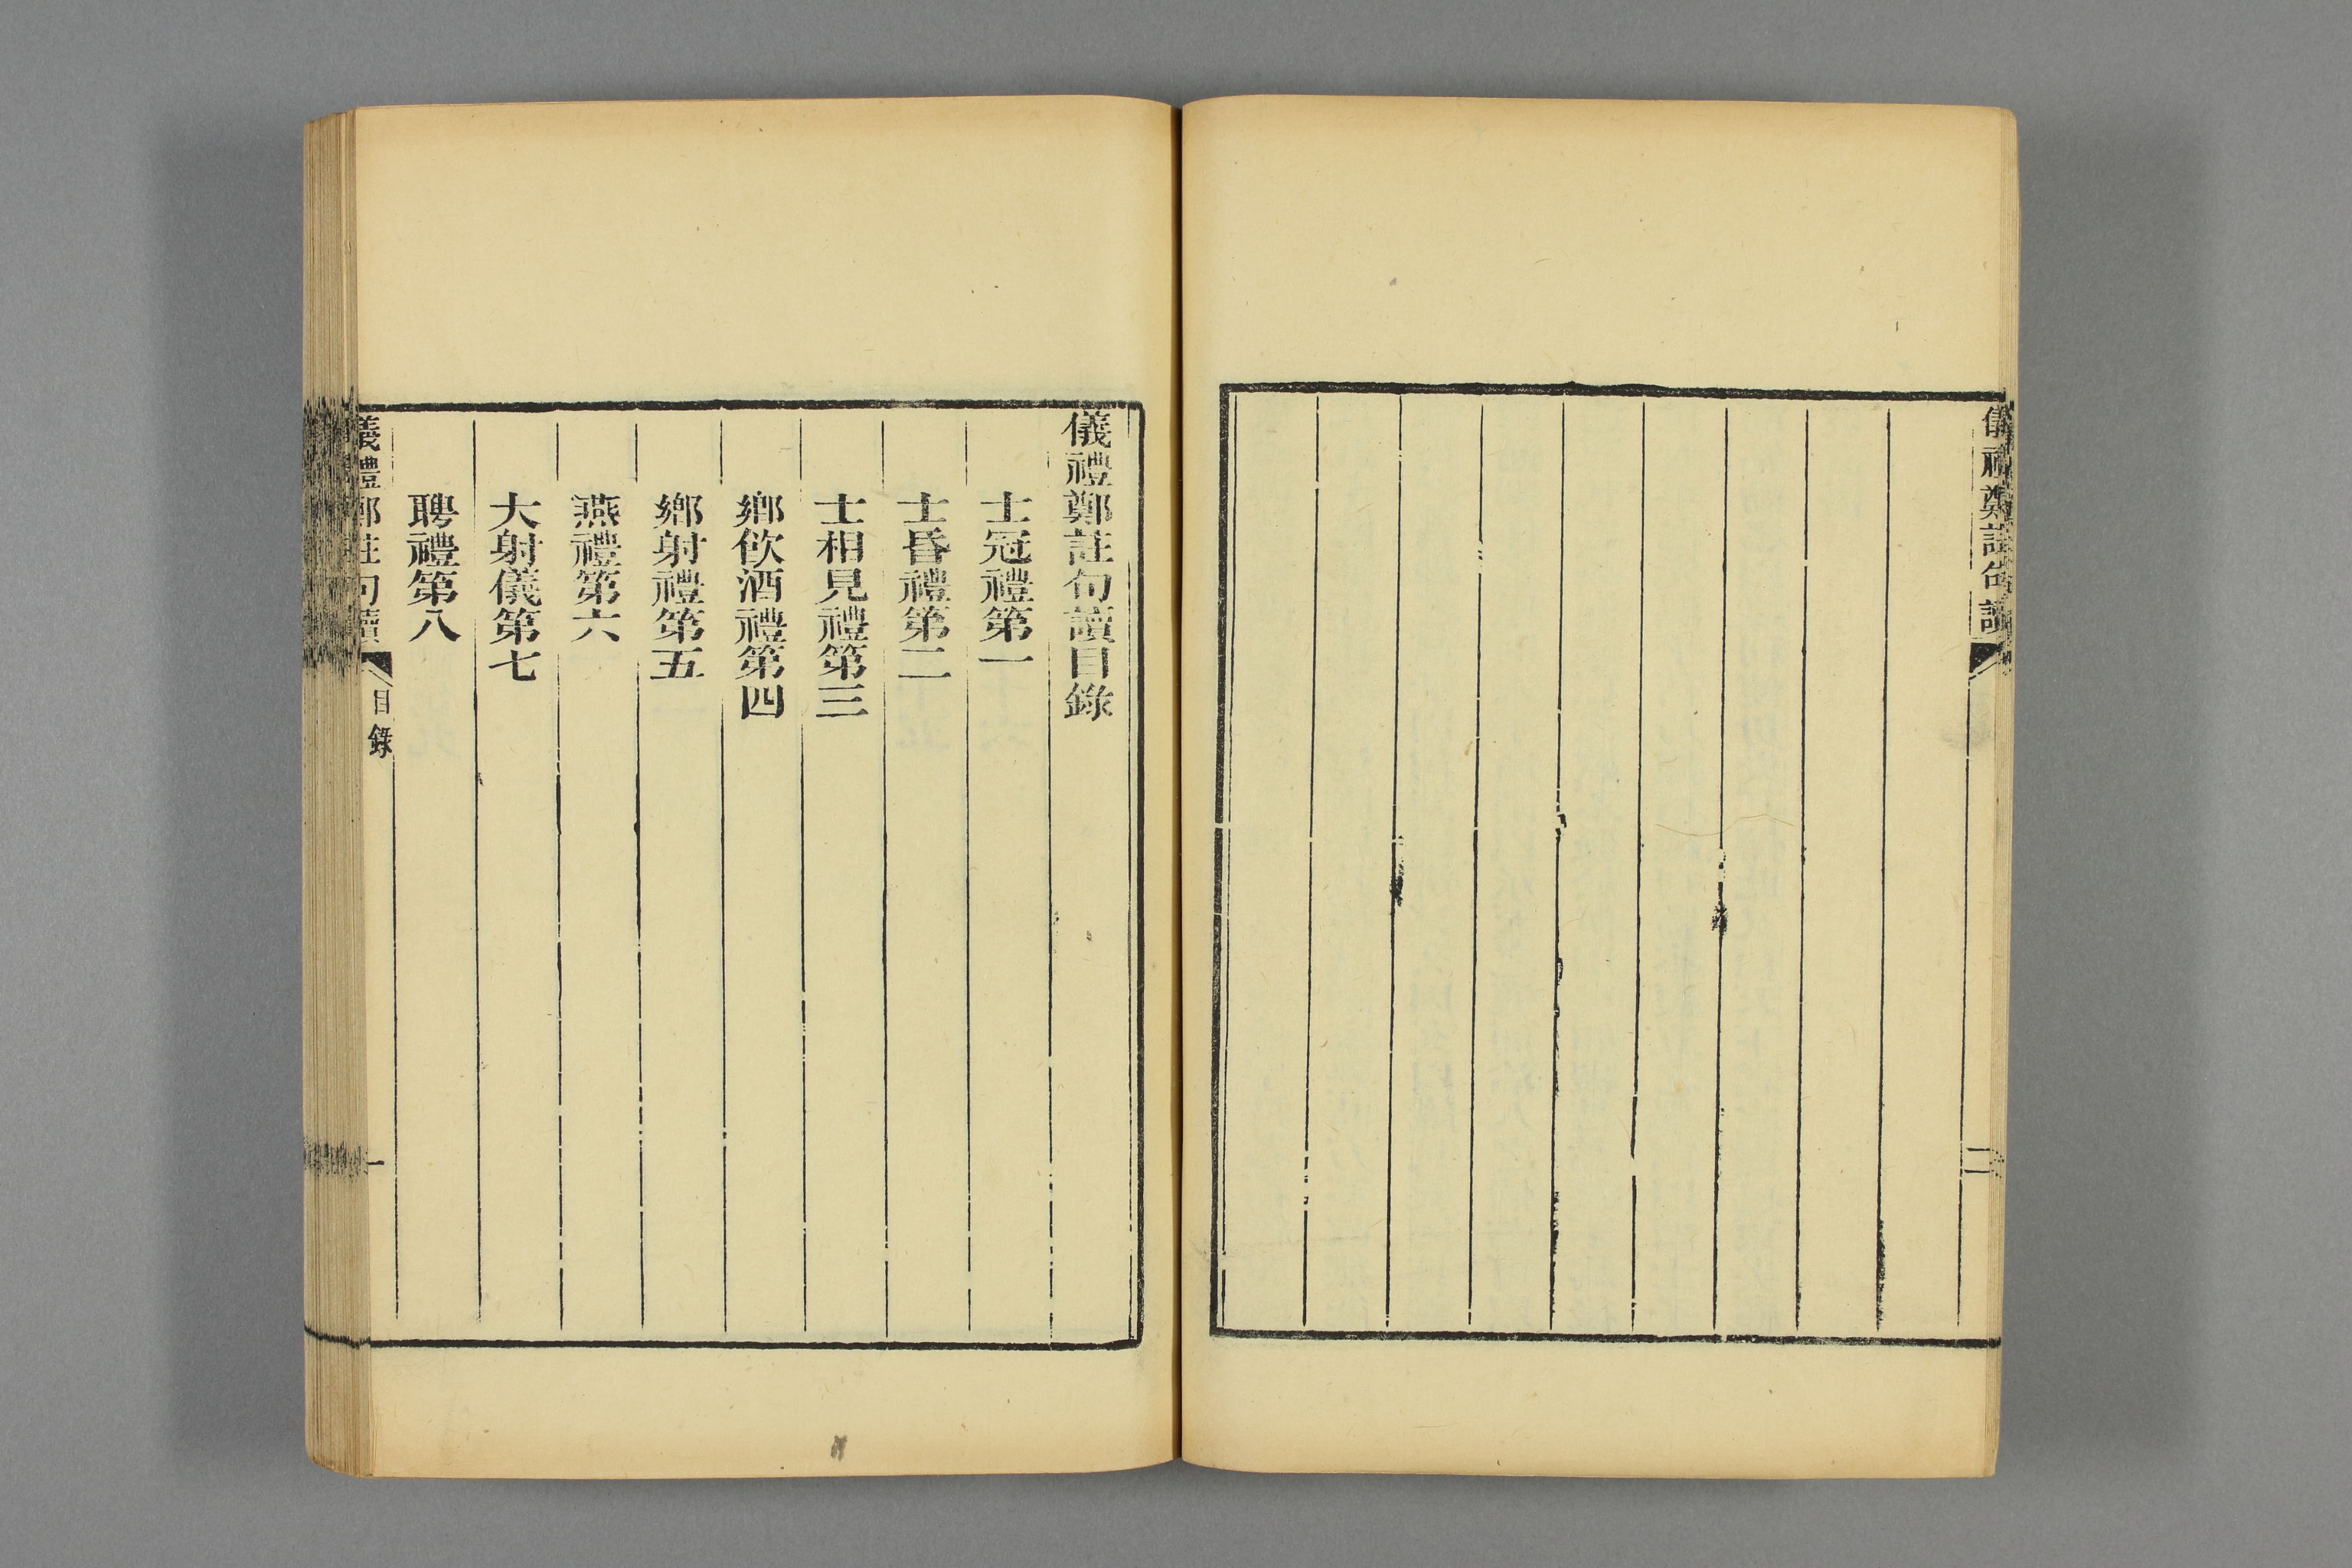 儀禮鄭註句讀
二
儀禮鄭註句讀目錄
士冠禮第一
士昏禮第二
士相見禮第三
鄉飮酒禮第四
鄉射禮第五
燕禮第六
大射儀第七
聘禮第八
儀禮鄭註句讀
目錄
一